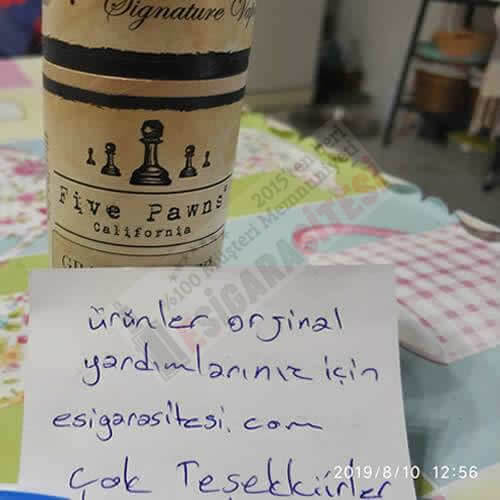 Signature
Five Pawns
California
ürünler orjinal
yardımlarınız için
esigarasitesi.com
Çok Teşekkürler
2015'ten beri
%100 Müşteri Memnuniyeti
ESİGARASİTESİ
2019/8/10 12:56